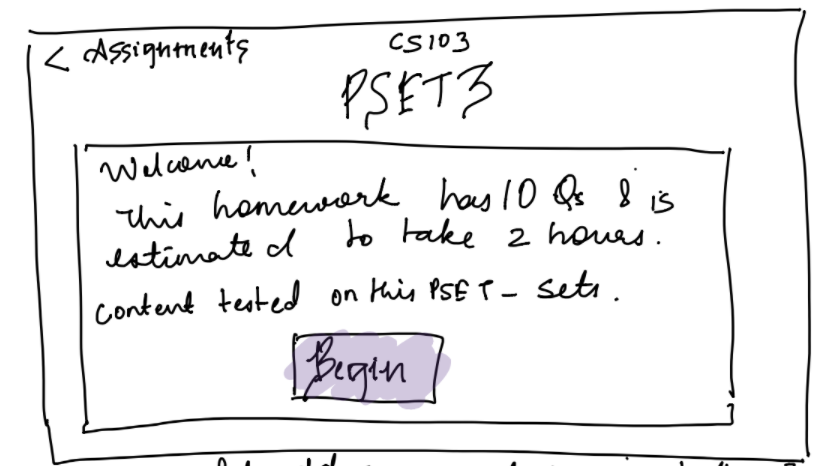 < Assignments
CS103
PSET3
Welcome!
This homework has 10 Qs & is
estimated to take 2 hours.
content tested on this PSET - sets.
Begin